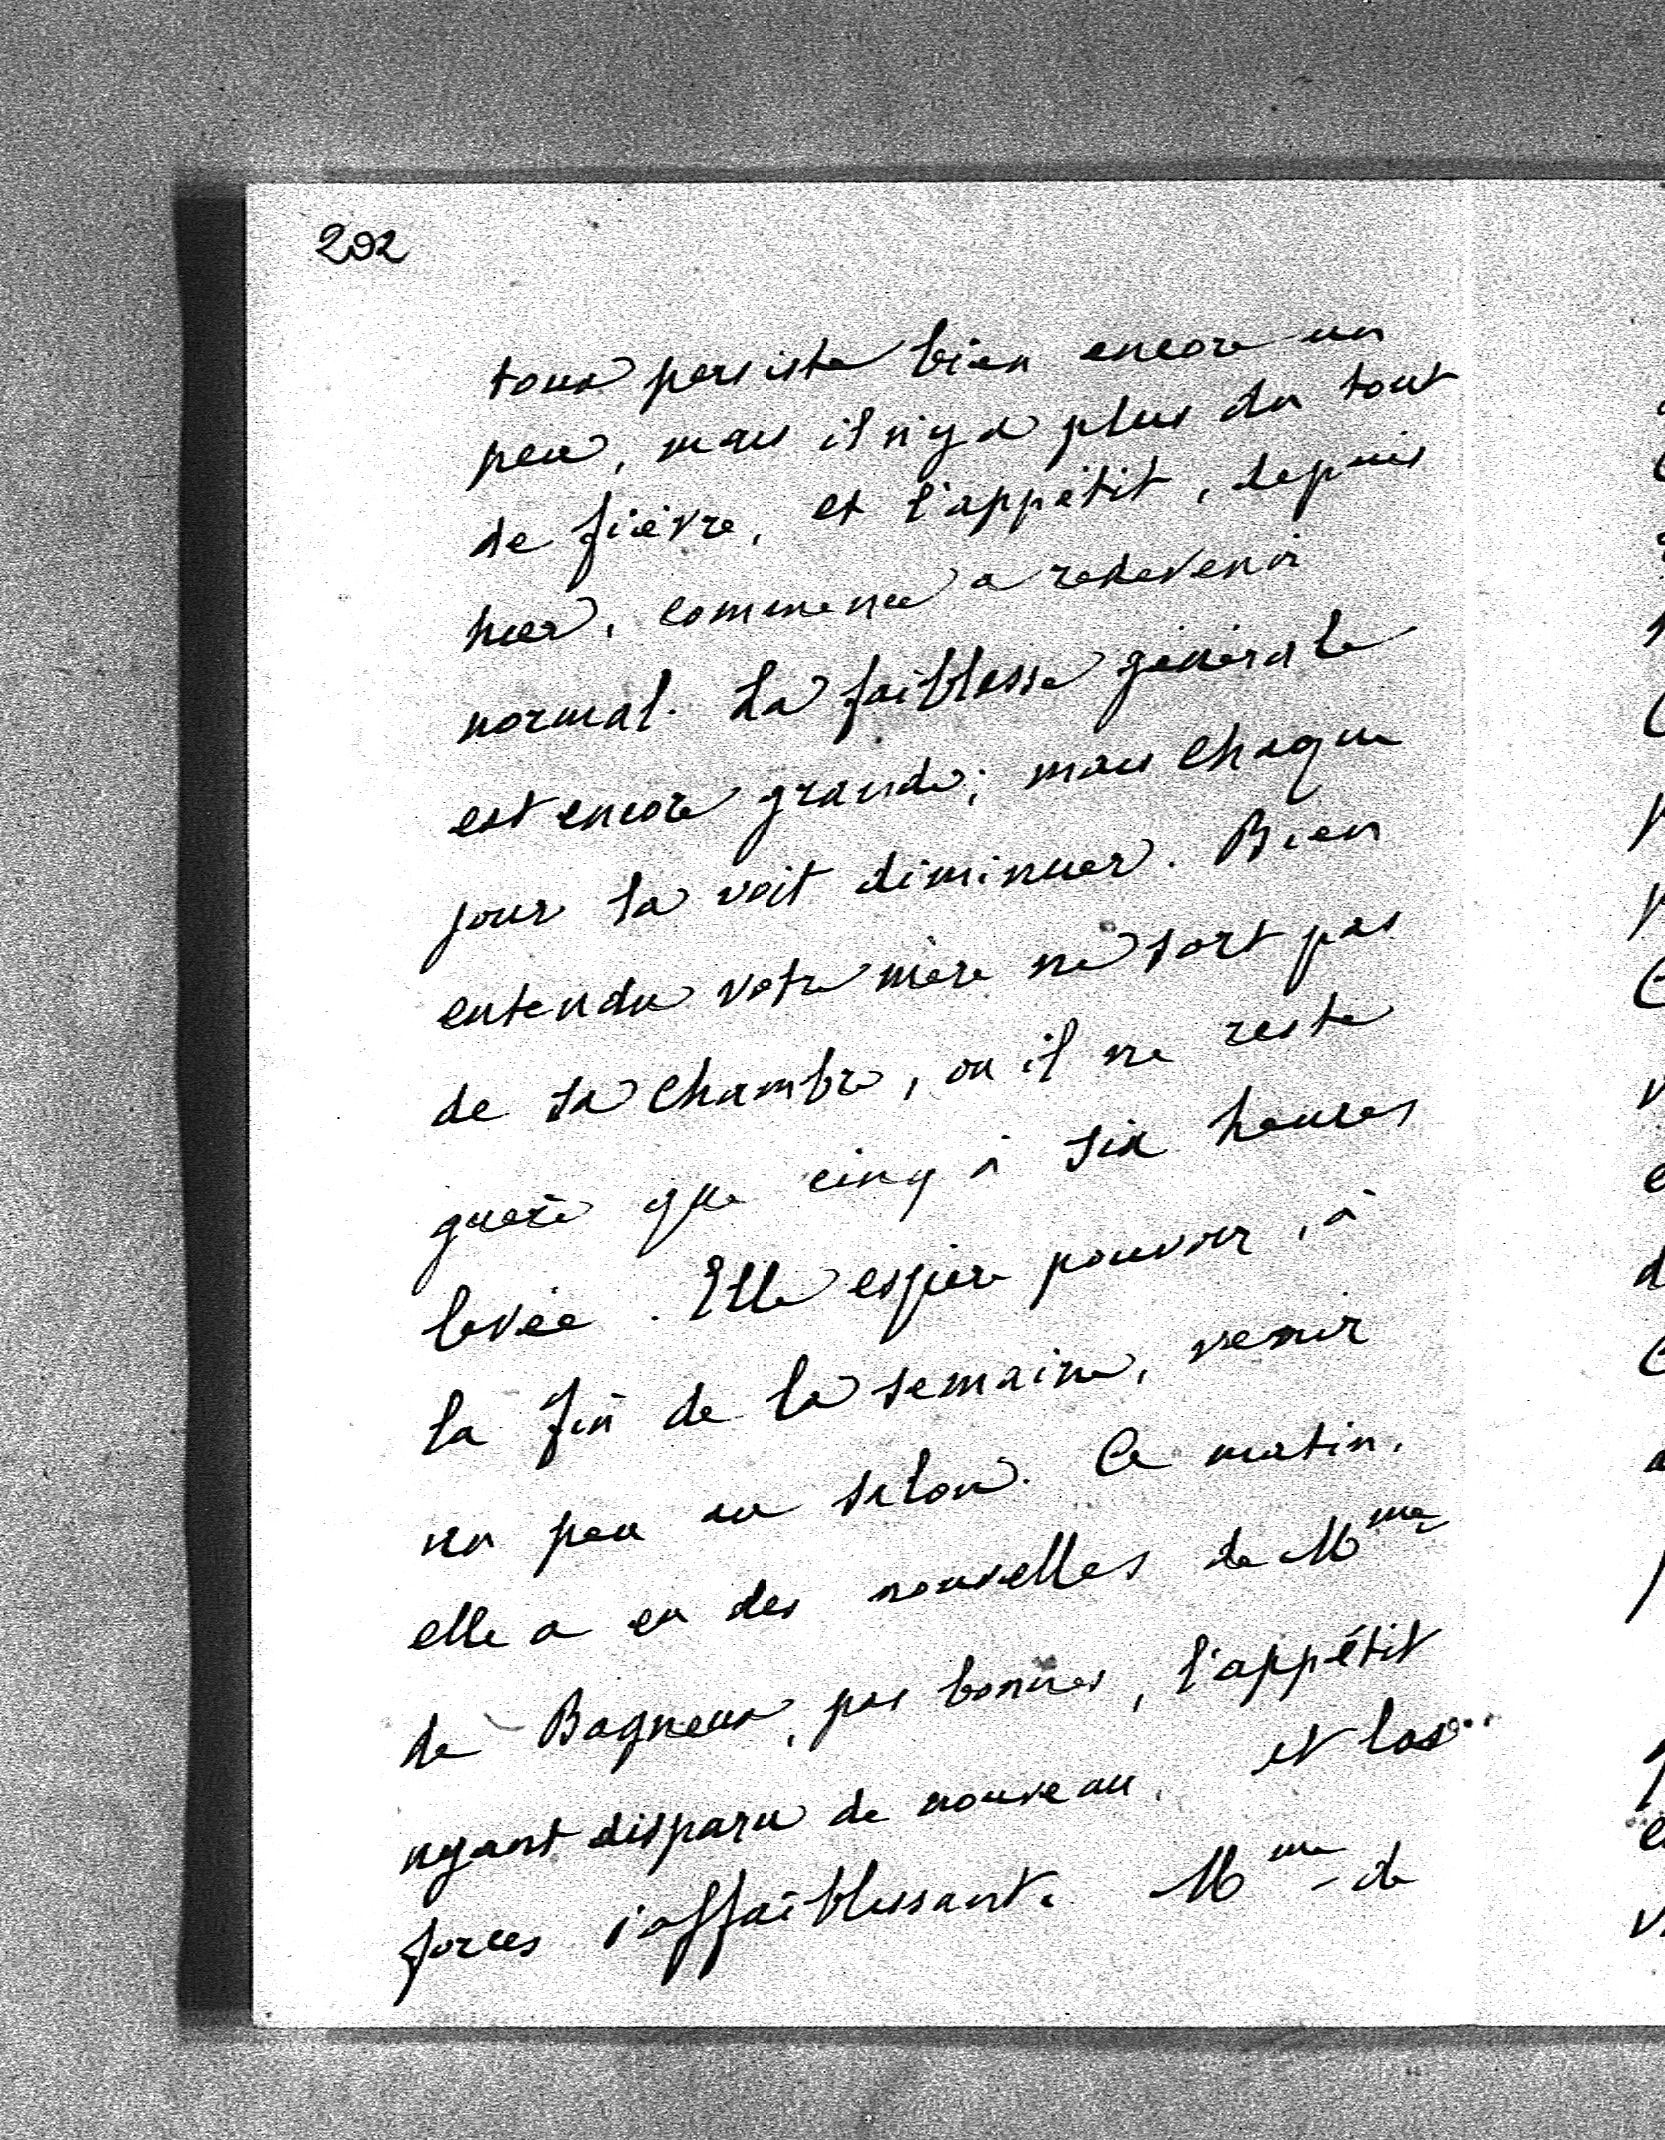 202
toux persiste bien encore un
peu, mais il n'y a plus du tout
de fièvre, et l'appétit, depuis
hier, commence a redevenir
normal. La faiblesse générale
est encore grande; mais chaque
jour la voit diminuer. Bien
entendu votre mère ne sort pas
de sa chambre, ou il ne reste
guère que cinq à six heures
levée. Elle espère pouvoir, à
la fin de la semaine, venir
un peu au salon. Ce matin,
elle a eu des nouvelles de Mme
de Bagneux, pas bonnes, l'appétit
ayant disparu de nouveau, et les
forces s'affaiblissant. Mme de